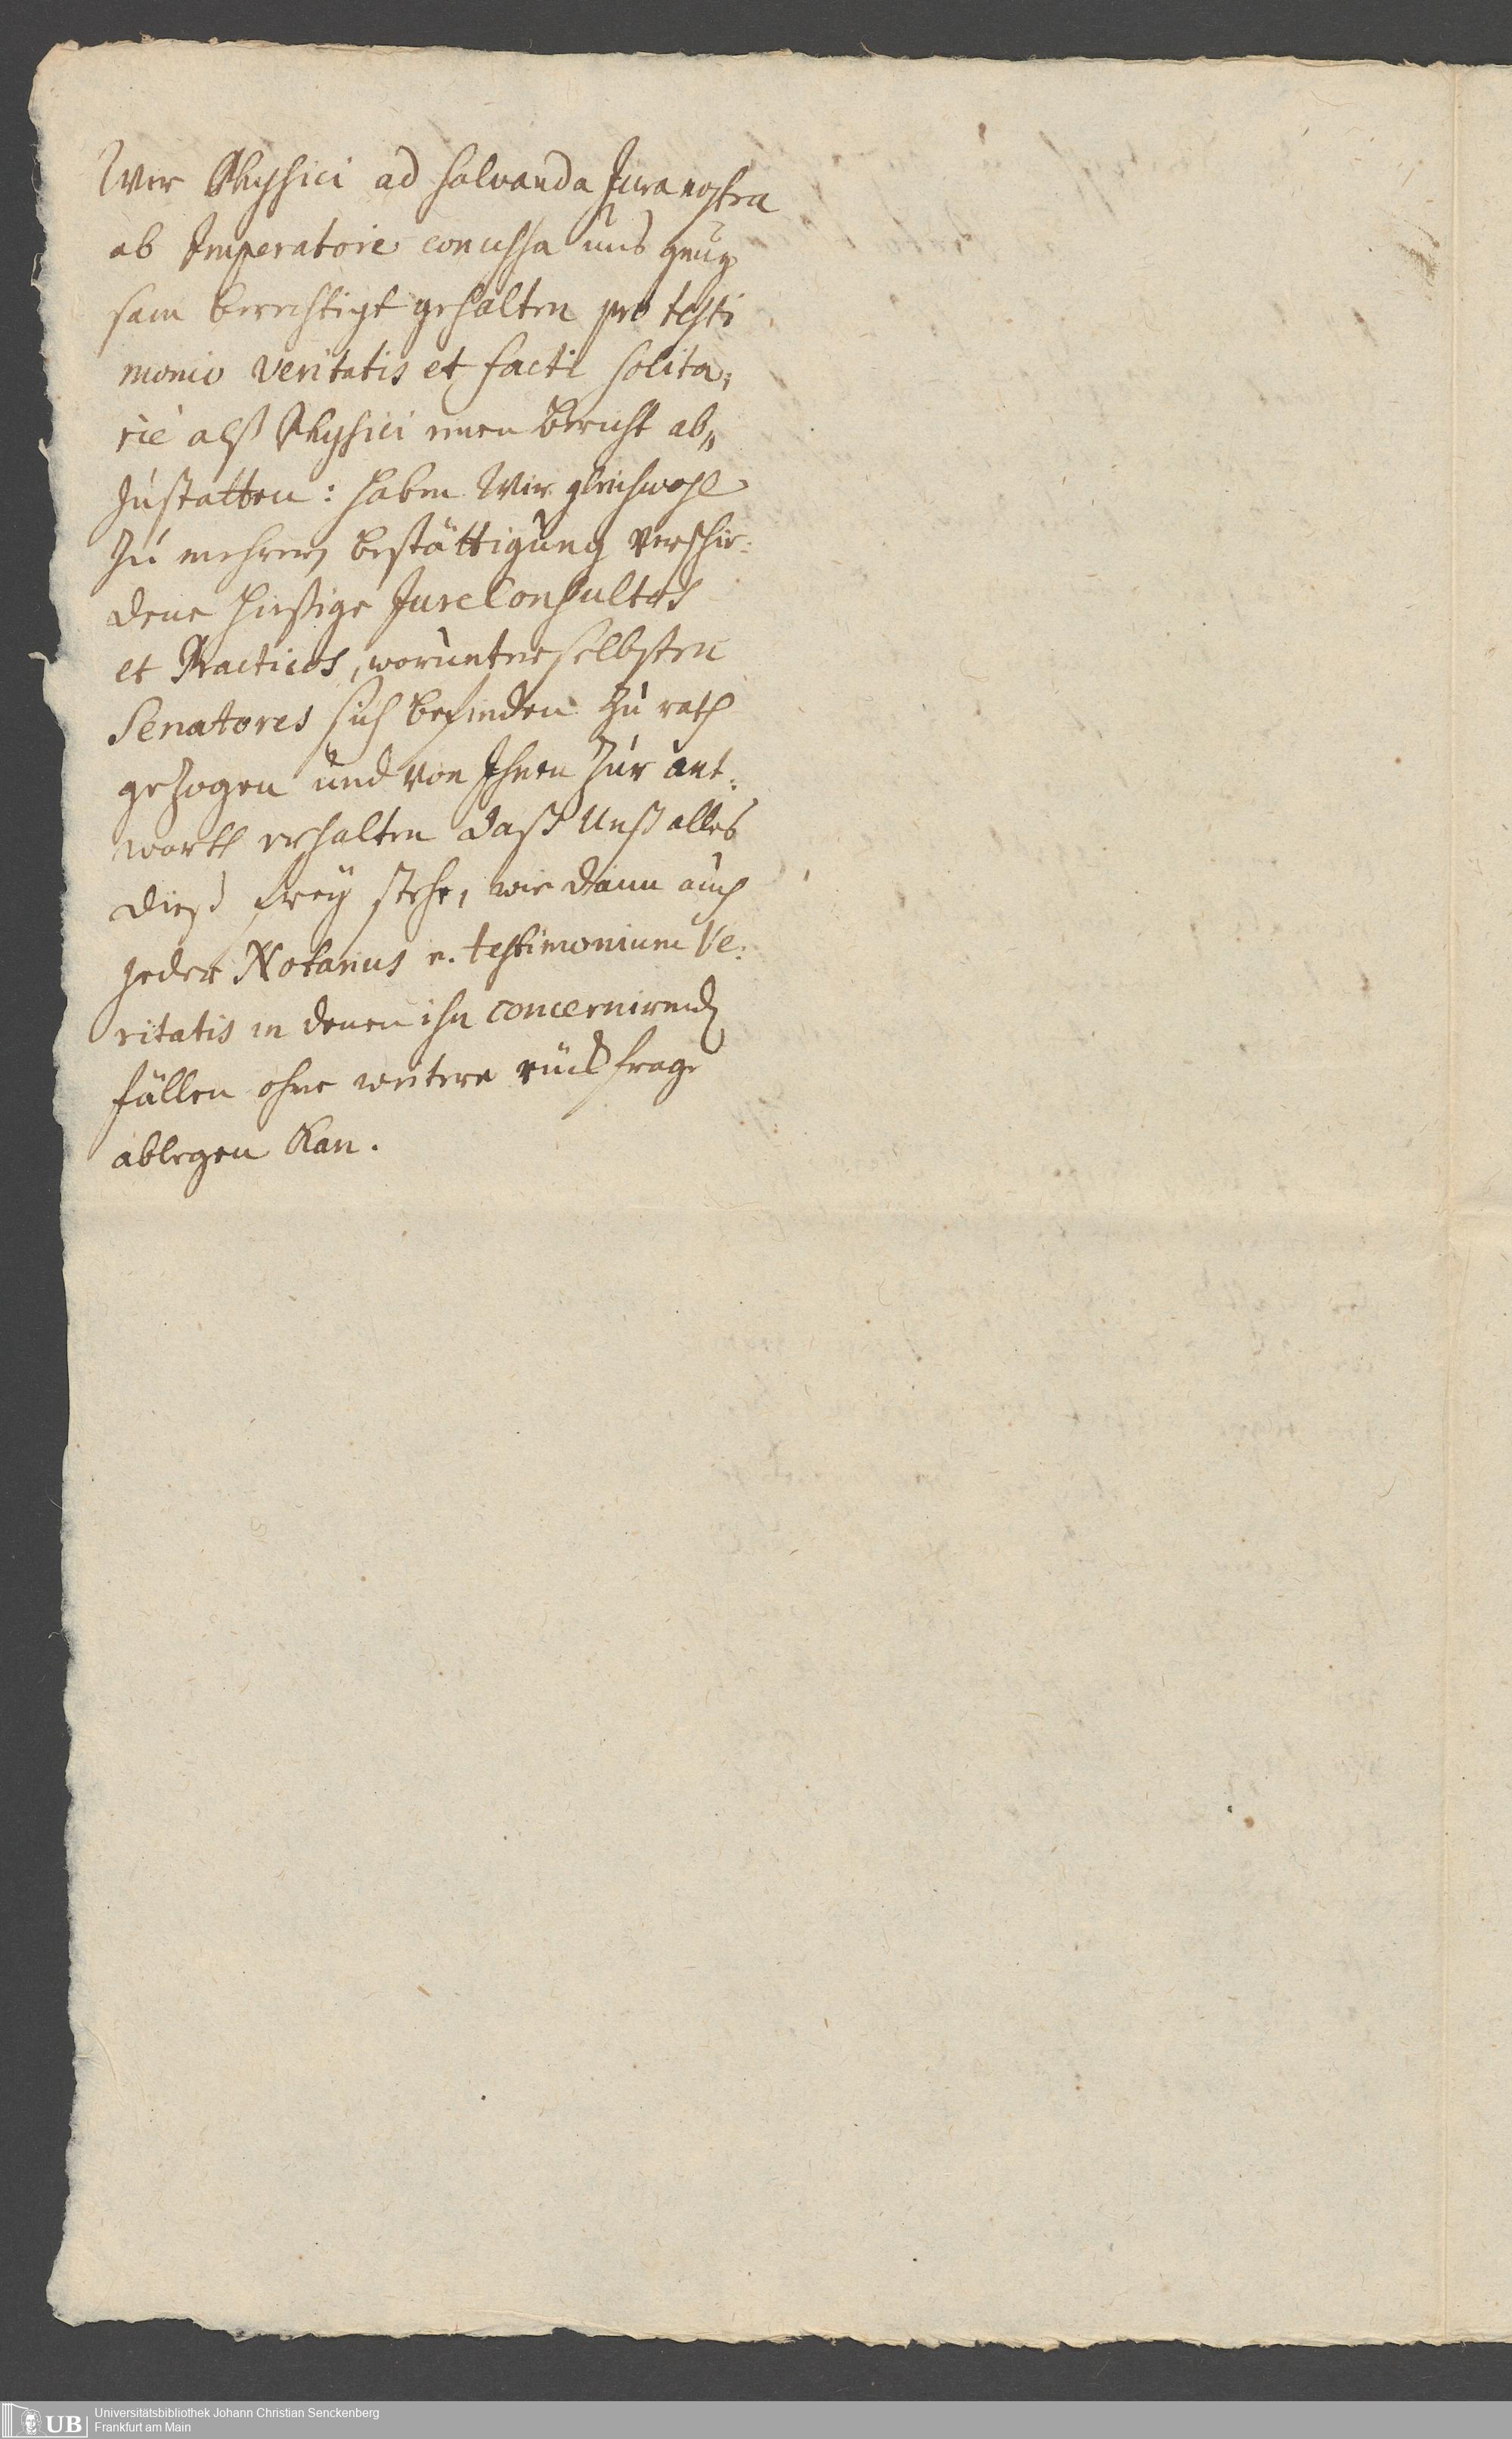 Wir Physici ad salvanda Jura nostra
ab Imperatore concessa uns gnug
sam berechtigt gehalten pro testi
monio veritatis et facti solita,
rie alß Physici einen Bericht ab„
zustatten: haben Wir gleichwohl
zu mehrer bestättigung verschie:
dene hiesige JureConsultos
et Practicos, worunter selbsten
Senatores sich befinden zu rath
gezogen und von Ihnen zur ant:
worth erhalten daß Unß alles
dieß frey stehe, wie dann auch
jeder Notarius e. testimonium Ve:
ritatis in denen ihn concernirend
fällen ohne weitere rückfrage
ablegen kan.
UB
Universitätsbibliothek Johann Christian Senckenberg
Frankfurt am Main